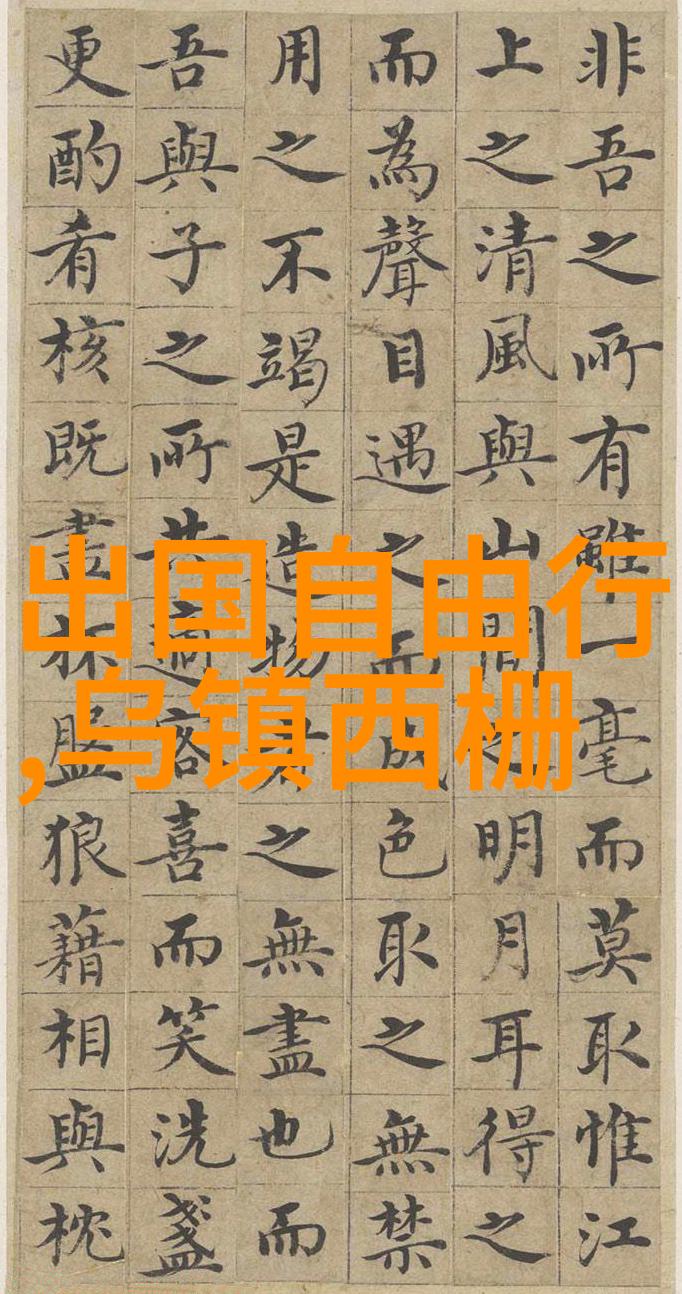 非吾之所有雖一毫而莫取惟江
上之清風與山間之明月耳得之
而為聲目遇之而成色取之無禁
用之不竭是造物者之無盡也而
吾與子之所共適客喜而笑洗盞
更酌肴核既盡杯盤狼藉相與枕
出国自由行
,乌镇西栅